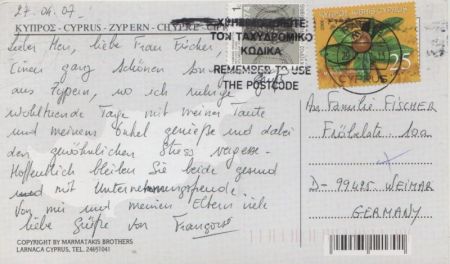 27.04.07.
ΚΥΠΡΟΣ - CYPRUS - ZYPERN - CHYPRE - CIPRO
ΧΡΗΣΙΜΟΠΟΙΕΙΤΕ:
ΤΟΝ ΤΑΧΥΔΡΟΜΙΚΟ
ΚΩΔΙΚΑ
REMEMBER TO USE
THE POSTCODE
1
CYPRUS
25
Lieber Herr, liebe Frau Fischer,
Einen ganz schönen Gruß
aus Zypern, wo ich ruhige
wohltuende Tage mit meiner Tante
und meinem Onkel genieße und dabei
den gewöhnlichen Stress vergesse.
Hoffentlich bleiben Sie beide gesund
und mit Unternehmungsfreude.
Von mir und meinen Eltern viele
liebe Grüße von
An Familie FISCHER
Fröbelstr. 10a
D- 99425 WEIMAR
GERMANY
COPYRIGHT BY MARMATAKIS BROTHERS
LARNACA CYPRUS, TEL. 24651041